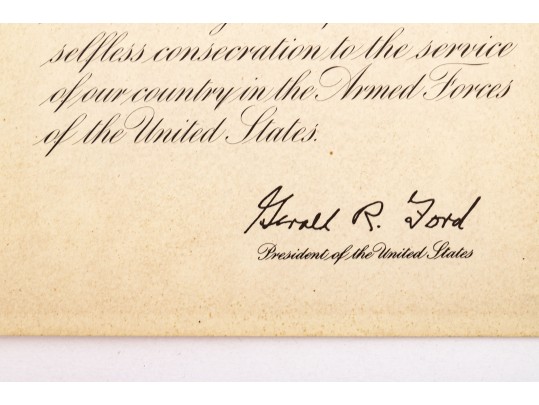 selfless consecration to the service
of our country in the Armed Forces
of the United States.
Gerald R. Ford
President of the United States